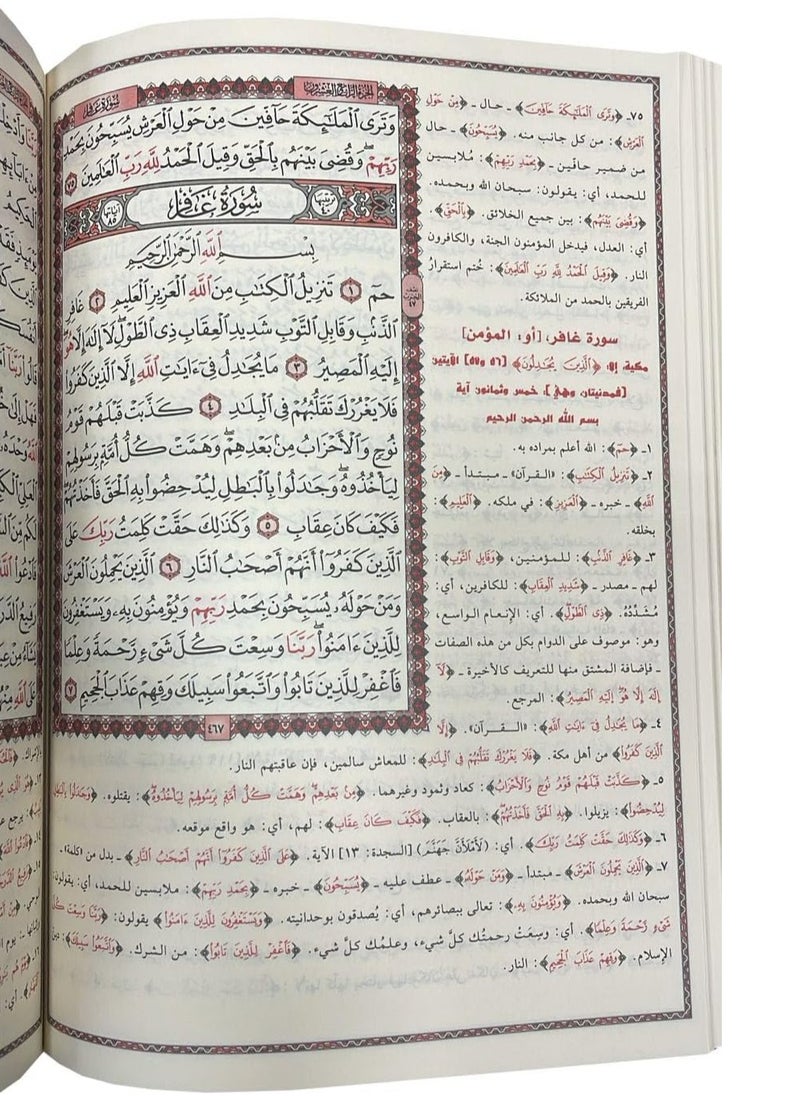 الجزء الرابع والعشرون
سورة غافر
وَتَرَى ٱلْمَلَٰٓئِكَةَ حَآفِّينَ مِنْ حَوْلِ ٱلْعَرْشِ يُسَبِّحُونَ بِحَمْدِ
رَبِّهِمْ ۖ وَقُضِىَ بَيْنَهُم بِٱلْحَقِّ وَقِيلَ ٱلْحَمْدُ لِلَّهِ رَبِّ ٱلْعَٰلَمِينَ ٧٥
ترتيبها ٤٠
سُورَةُ غَافِرٍ
آياتها ٨٥
بِسْمِ ٱللَّهِ ٱلرَّحْمَٰنِ ٱلرَّحِيمِ
حمٓ ١ تَنزِيلُ ٱلْكِتَٰبِ مِنَ ٱللَّهِ ٱلْعَزِيزِ ٱلْعَلِيمِ ٢ غَافِرِ
ٱلذَّنۢبِ وَقَابِلِ ٱلتَّوْبِ شَدِيدِ ٱلْعِقَابِ ذِى ٱلطَّوْلِ ۖ لَآ إِلَٰهَ إِلَّا هُوَ ۖ
إِلَيْهِ ٱلْمَصِيرُ ٣ مَا يُجَٰدِلُ فِىٓ ءَايَٰتِ ٱللَّهِ إِلَّا ٱلَّذِينَ كَفَرُوا۟
فَلَا يَغْرُرْكَ تَقَلُّبُهُمْ فِى ٱلْبِلَٰدِ ٤ كَذَّبَتْ قَبْلَهُمْ قَوْمُ
نُوحٍ وَٱلْأَحْزَابُ مِنۢ بَعْدِهِمْ ۖ وَهَمَّتْ كُلُّ أُمَّةٍۭ بِرَسُولِهِمْ
لِيَأْخُذُوهُ ۖ وَجَٰدَلُوا۟ بِٱلْبَٰطِلِ لِيُدْحِضُوا۟ بِهِ ٱلْحَقَّ فَأَخَذْتُهُمْ ۖ
فَكَيْفَ كَانَ عِقَابِ ٥ وَكَذَٰلِكَ حَقَّتْ كَلِمَتُ رَبِّكَ عَلَى
ٱلَّذِينَ كَفَرُوٓا۟ أَنَّهُمْ أَصْحَٰبُ ٱلنَّارِ ٦ ٱلَّذِينَ يَحْمِلُونَ ٱلْعَرْشَ
وَمَنْ حَوْلَهُۥ يُسَبِّحُونَ بِحَمْدِ رَبِّهِمْ وَيُؤْمِنُونَ بِهِۦ وَيَسْتَغْفِرُونَ
لِلَّذِينَ ءَامَنُوا۟ رَبَّنَا وَسِعْتَ كُلَّ شَىْءٍ رَّحْمَةً وَعِلْمًا
فَٱغْفِرْ لِلَّذِينَ تَابُوا۟ وَٱتَّبَعُوا۟ سَبِيلَكَ وَقِهِمْ عَذَابَ ٱلْجَحِيمِ ٧
٤٦٧
٧٥ـ ﴿وَتَرَى الْمَلَائِكَةَ حَافِّينَ﴾ ـ حال ـ ﴿مِنْ حَوْلِ
الْعَرْشِ﴾: من كل جانب منه. ﴿يُسَبِّحُونَ﴾ ـ حال
من ضمير حافين ـ ﴿بِحَمْدِ رَبِّهِمْ﴾: مُلابسين
للحمد، أي: يقولون: سبحان الله وبحمده.
﴿وَقُضِيَ بَيْنَهُمْ﴾: بين جميع الخلائق. ﴿بِالْحَقِّ﴾.
أي: العدل، فيدخل المؤمنون الجنة، والكافرون
النار. ﴿وَقِيلَ الْحَمْدُ لِلَّهِ رَبِّ الْعَالَمِينَ﴾: خُتم استقرار
الفريقين بالحمد من الملائكة.
سورة غافر، [أو: المؤمن]
مكية، إلا: ﴿الَّذِينَ يُجَادِلُونَ﴾ [٥٦ و٥٧] الآيتين
[فمدنيتان، وهي]، خمس وثمانون آية
بسم الله الرحمن الرحيم
١ـ ﴿حم﴾: الله أعلم بمراده به.
٢ـ ﴿تَنْزِيلُ الْكِتَابِ﴾: «القرآن» ـ مبتدأ ـ ﴿مِنَ
اللَّهِ﴾ ـ خبره ـ ﴿الْعَزِيزِ﴾: في ملكه. ﴿الْعَلِيمِ﴾:
بخلقه.
٣ـ ﴿غَافِرِ الذَّنْبِ﴾: للمؤمنين، ﴿وَقَابِلِ التَّوْبِ﴾:
لهم ـ مصدر ـ ﴿شَدِيدِ الْعِقَابِ﴾: للكافرين، أي:
مُشدِّدُهُ. ﴿ذِي الطَّوْلِ﴾. أي: الإنعام الواسع،
وهو: موصوف على الدوام بكل من هذه الصفات
ـ فإضافة المشتق منها للتعريف كالأخيرة ـ ﴿لَا
إِلَهَ إِلَّا هُوَ إِلَيْهِ الْمَصِيرُ﴾: المرجع.
٤ـ ﴿مَا يُجَادِلُ فِي آيَاتِ اللَّهِ﴾: «القرآن». ﴿إِلَّا
الَّذِينَ كَفَرُوا﴾ من أهل مكة. ﴿فَلَا يَغْرُرْكَ تَقَلُّبُهُمْ فِي الْبِلَادِ﴾: للمعاش سالمين، فإن عاقبتهم النار.
٥ـ ﴿كَذَّبَتْ قَبْلَهُمْ قَوْمُ نُوحٍ وَالْأَحْزَابُ﴾: كعاد وثمود وغيرهما. ﴿مِنْ بَعْدِهِمْ وَهَمَّتْ كُلُّ أُمَّةٍ بِرَسُولِهِمْ لِيَأْخُذُوهُ﴾: يقتلوه. ﴿وَجَادَلُوا بِالْبَاطِلِ
لِيُدْحِضُوا﴾: يزيلوا. ﴿بِهِ الْحَقَّ فَأَخَذْتُهُمْ﴾: بالعقاب. ﴿فَكَيْفَ كَانَ عِقَابِ﴾: لهم، أي: هو واقع موقعه.
٦ـ ﴿وَكَذَلِكَ حَقَّتْ كَلِمَتُ رَبِّكَ﴾. أي: (لَأَمْلَأَنَّ جَهَنَّمَ) [السجدة: ١٣] الآية. ﴿عَلَى الَّذِينَ كَفَرُوا أَنَّهُمْ أَصْحَابُ النَّارِ﴾ ـ بدل من «كلمة».
٧ـ ﴿الَّذِينَ يَحْمِلُونَ الْعَرْشَ﴾ ـ مبتدأ ـ ﴿وَمَنْ حَوْلَهُ﴾ ـ عطف عليه ـ ﴿يُسَبِّحُونَ﴾ ـ خبره ـ ﴿بِحَمْدِ رَبِّهِمْ﴾: ملابسين للحمد، أي: يقولون:
سبحان الله وبحمده. ﴿وَيُؤْمِنُونَ بِهِ﴾: تعالى ببصائرهم، أي: يُصدقون بوحدانيته. ﴿وَيَسْتَغْفِرُونَ لِلَّذِينَ آمَنُوا﴾ يقولون: ﴿رَبَّنَا وَسِعْتَ كُلَّ
شَيْءٍ رَحْمَةً وَعِلْمًا﴾. أي: وسِعَتْ رحمتك كلَّ شيء، وعلمُك كلَّ شيء. ﴿فَاغْفِرْ لِلَّذِينَ تَابُوا﴾: من الشرك. ﴿وَاتَّبَعُوا سَبِيلَكَ﴾: دين
الإسلام. ﴿وَقِهِمْ عَذَابَ الْجَحِيمِ﴾: النار.